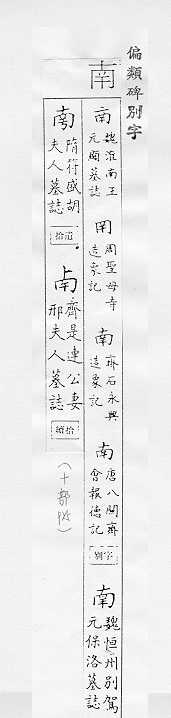 偏類碑別字
南
南 魏淮南王元顯墓誌
罔 周聖母寺造象記
南 齊石永興造象記
南 唐八關齋會報德記
別字
南 魏恒州別駕元保洛墓誌
南 隋符盛胡夫人墓誌
拾遺
南 齊是連公妻邢夫人墓誌
拾續